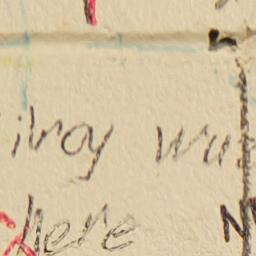 ilroy was
here